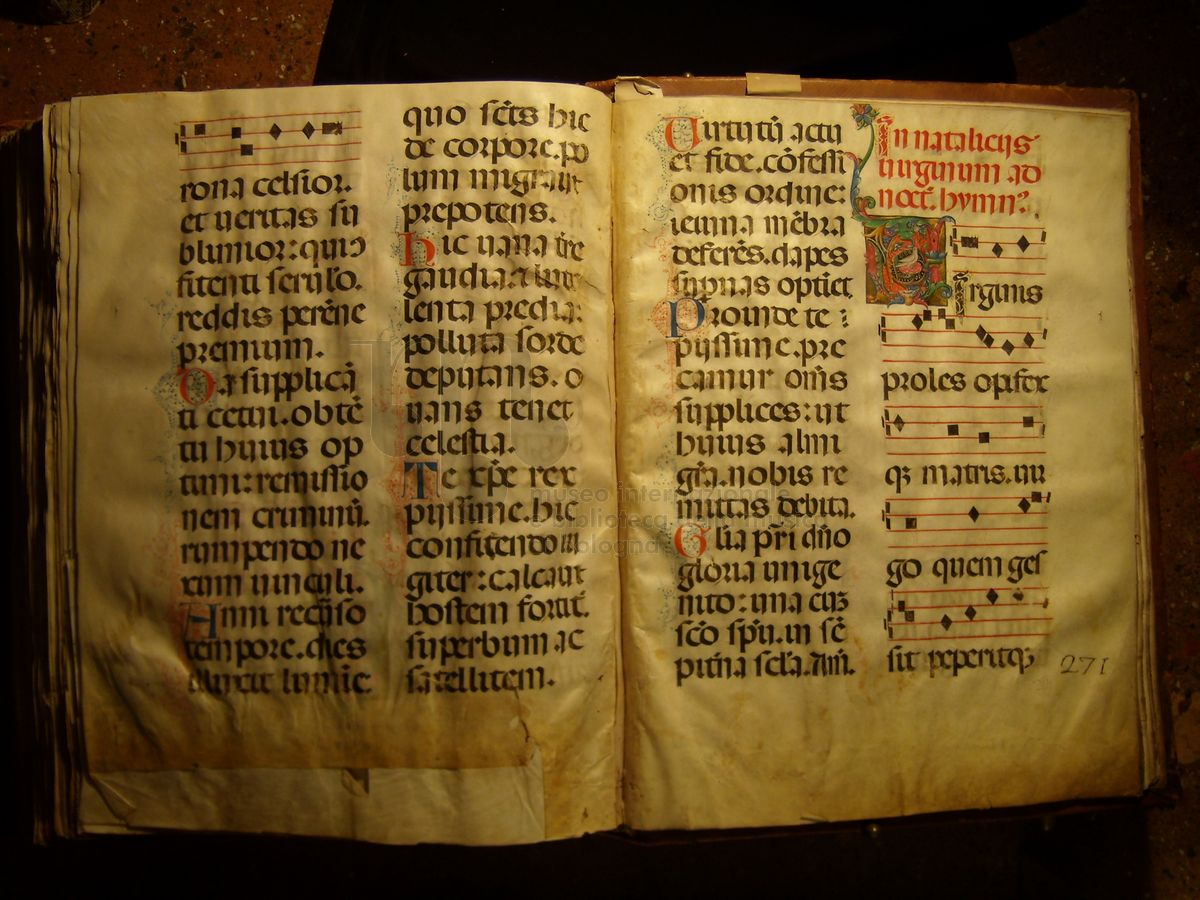 rona celsior.
et ueritas su
blimior: quo
fitenti seruulo.
reddis perēne
premium.
Da supplicā
ti cetui. obtē
tu huius op
timi: remissio
nem criminū.
rumpendo ne
xum uinculi.
Anni recurso
tempore. dies
illuxit lumīe
quo sctūs hic
de corpore. po
lum migrauit
prepotens.
Hic uana tre
gaudia. luu
lenta predia:
polluta sorde
deputans. o
uans tenet
celestia.
Te xp̄e rex
piissime. hic
confitendo iu
giter: calcauit
hostem fortit̄.
superbum ac
satellitem.
Uirtutū actu
et fide. cōfessi
onis ordine:
ieiuna mēbra
deferēs. dapes
supnas optiet.
Proinde te
piissime. pre
camur om̄s
supplices: ut
huius almi
gr̄a. nobis re
mittas debita.
Gl̄ia pr̄i dn̄o
gloria unige
nito: una cuȝ
scō spū. in sē
pitna scl̄a. Am̄.
In nataliciis
uirginum ad
noct̄. hymn᷒.
Uirginis
proles opifex
qȝ matris. uir
go quem ges
sit peperitqȝ
271
museo internazionale
e biblioteca della musica
bologna